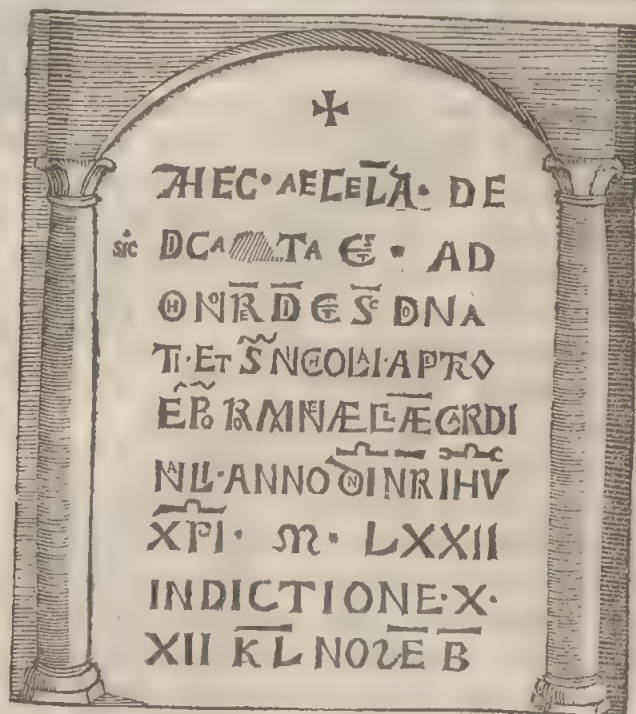 ✠
HEC · AECELA · DE
sic DICA TA EST · AD
HONORE DI ET SC DONA
TI · ET S NICOLAI · A PETRO
EPO ROMANAE ECLAE CARDI
NALI · ANNO DNI NRI IHV
XPI · M · LXXII
INDICTIONE · X ·
XII KL NOVE B